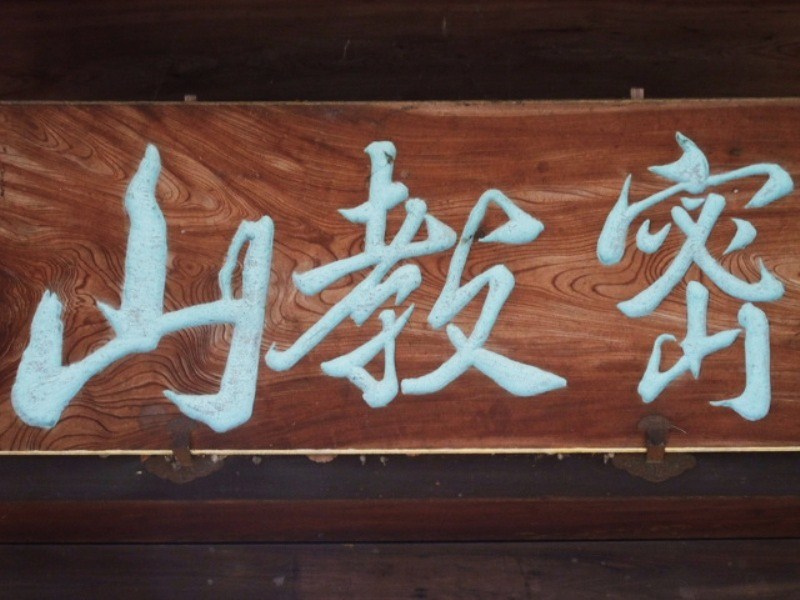 密教山